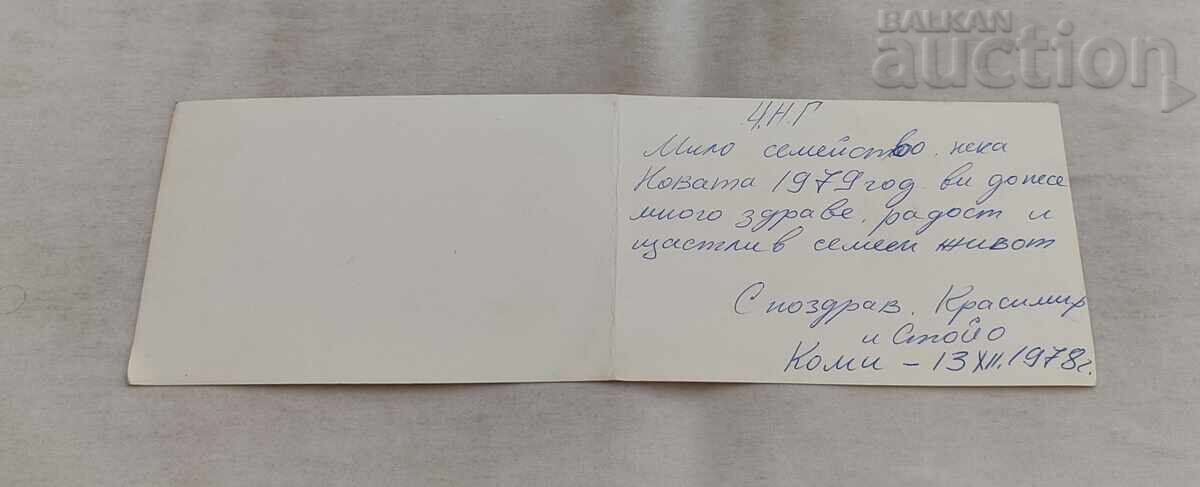 BALKAN
auction
Ч.Н.Г
Мило семейство, нека
Новата 1979 год. ви донесе
много здраве, радост и
щастлив семеен живот
С поздрав. Красимир
и Стойо
Коми - 13 XII. 1978 г.